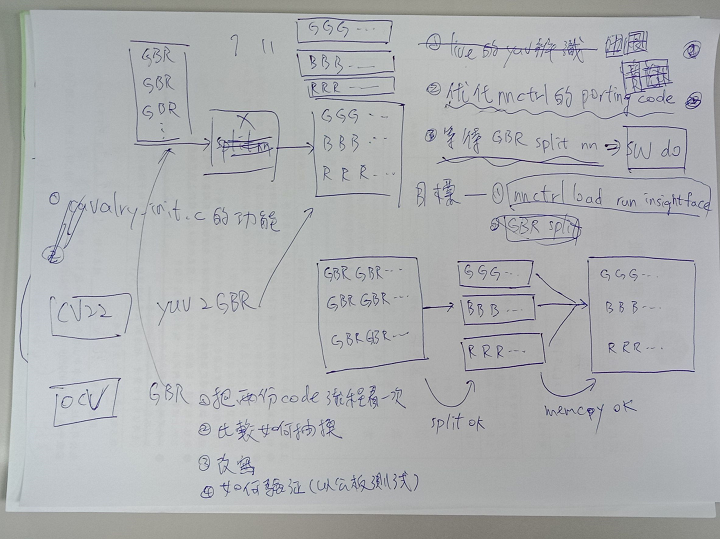 GBR
GBR
GBR
⋮
? 11
GGG...
BBB...
RRR...
X
split nn
GGG...
BBB...
RRR...
① live的yuv辨識
② 优化nnctrl的porting code
③ 等待GBR split nn ⇒ SW do
目標 — ① nnctrl load run insightface
② GBR split
① cavalry_init.c的功能
CV22 yuv2GBR
OCV GBR
GBR GBR...
GBR GBR...
GBR GBR...
GGG...
BBB...
RRR...
GGG...
BBB...
RRR...
split ok
memcpy ok
① 把兩份code流程看一次
② 比較如何抽換
③ 改寫
④ 如何驗证(以公板測試)